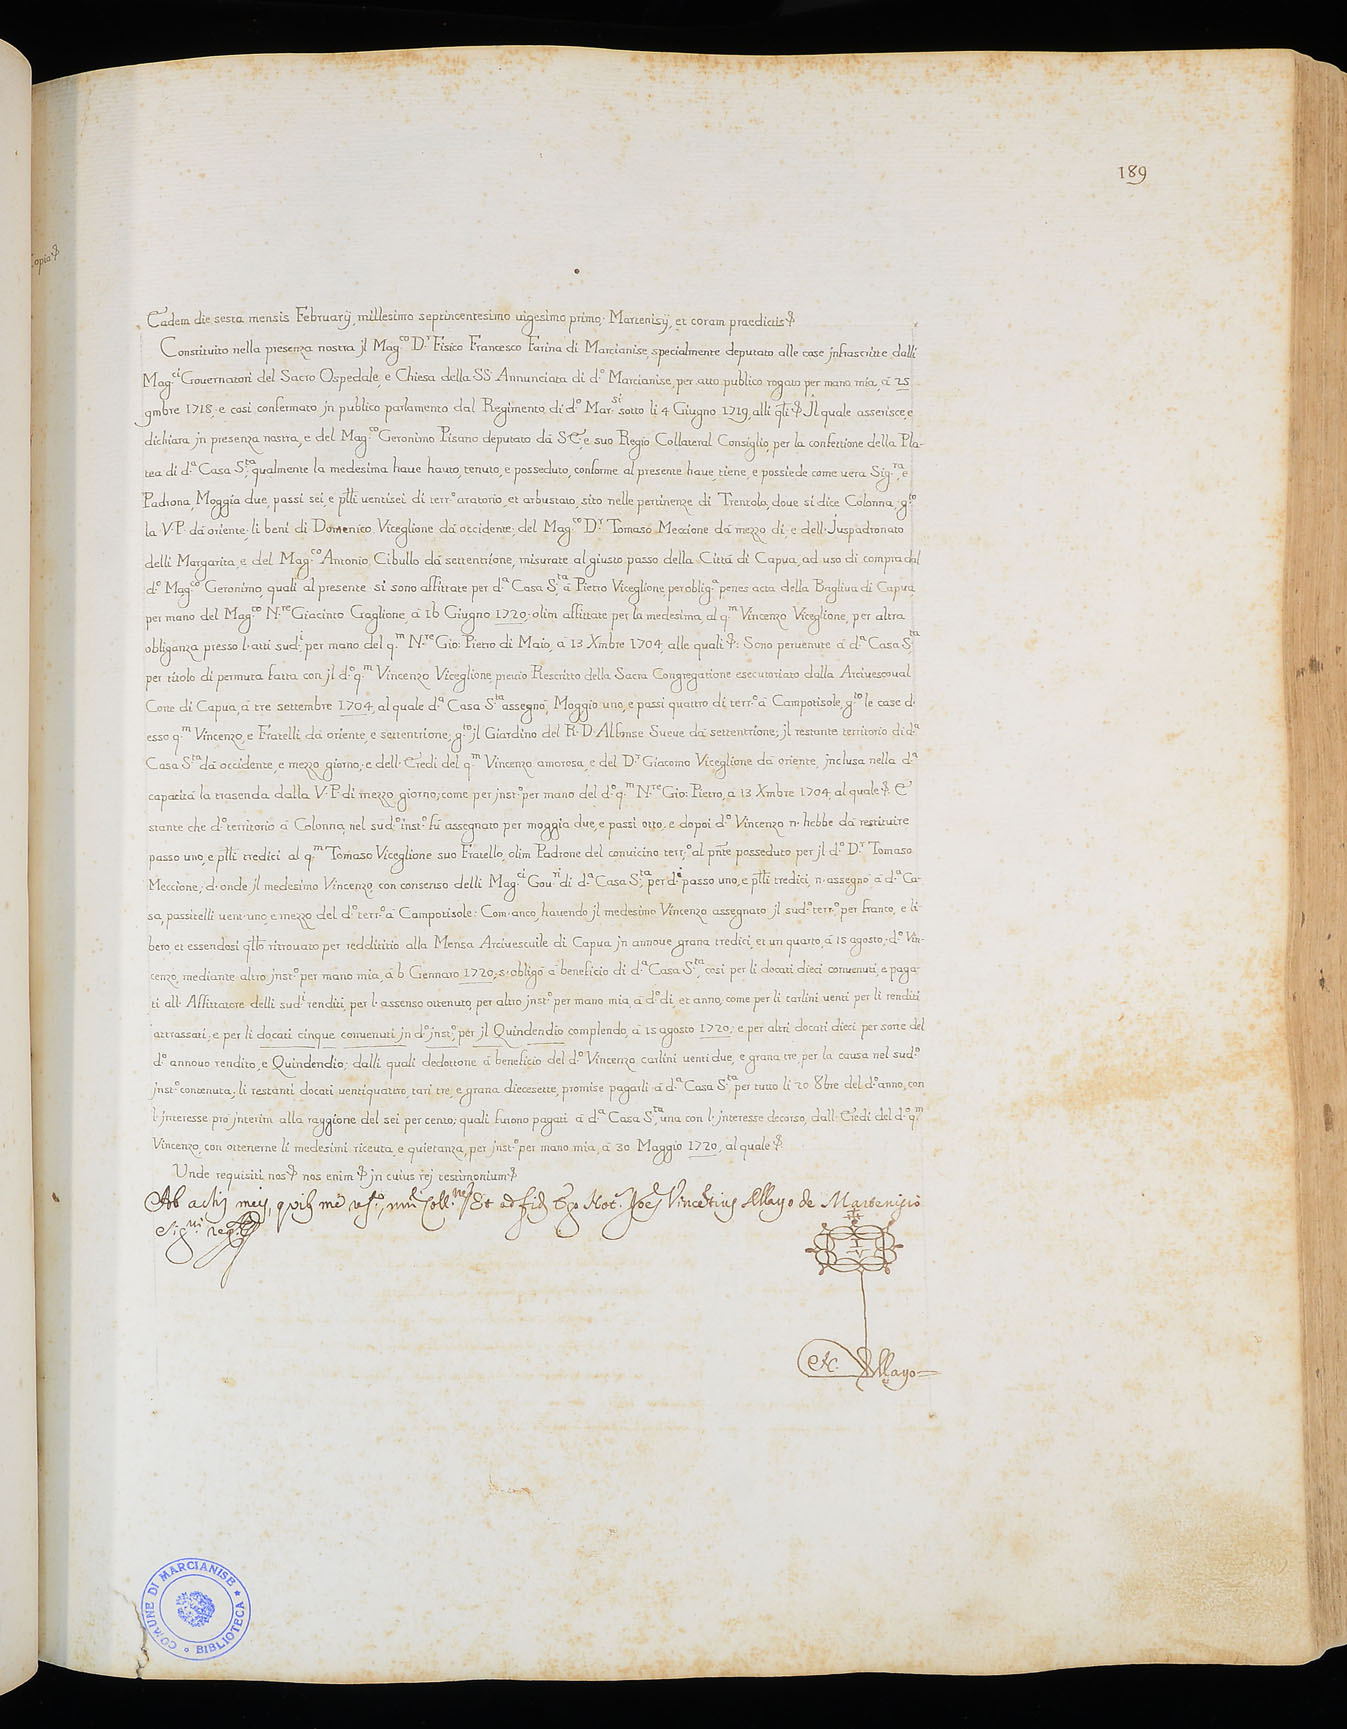 189
Copia
Eadem die sexta mensis Februarij, millesimo septincentesimo uigesimo primo, Martenisij, et coram praedictis
Constituito nella presenza nostra jl Mag.co D.r Fisico Francesco Farina di Marcianise, specialmente deputato alle cose jnfrascritte dalli
Mag.ci Gouernatori del Sacro Ospedale, e Chiesa della SS. Annunciata di d.o Marcianise, per atto publico rogato per mano mia, à 25
9mbre 1718, e così confermato jn publico parlamento dal Regimento di d.o Mar.si sotto li 4 Giugno 1719, alli q'li Jl quale asserisce, e
dichiara jn presenza nostra, e del Mag.co Geronimo Pisano deputato da S.E., e suo Regio Collateral Consiglio, per la confettione della Pla-
tea di d.a Casa S.ta, qualmente la medesima haue hauto, tenuto, e posseduto, conforme al presente haue, tiene, e possiede come uera Sig.ra, e
Padrona, Moggia due, passi sei, e p'lli uentisei di terr.o aratorio, et arbustato, sito nelle pertinenze di Trentola, doue si dice Colonna, g.to
la V.P. da oriente; li beni di Domenico Viceglione dà occidente; del Mag.co D.r Tomaso Meccione dà mezzo dì, e dell. Juspadronato
delli Margarita, e del Mag.co Antonio Cibullo dà settentrione, misurate al giusto passo della Città di Capua, ad uso di compra dal
d.o Mag.co Geronimo, quali al presente si sono affittate per d.a Casa S.ta à Pietro Viceglione, per oblig.a penes acta della Bagliua di Capua,
per mano del Mag.co N.re Giacinto Gaglione, à 16 Giugno 1720; olim affittate per la medesima, al q.m Vincenzo Viceglione, per altra
obliganza presso l. atti sud.i, per mano del q.m N.re Gio: Pietro di Maio, à 13 Xmbre 1704, alle quali: Sono peruenute à d.a Casa S.ta
per titolo di permuta fatta con jl d.o q.m Vincenzo Viceglione, preuio Rescritto della Sacra Congregatione esecutoriato dalla Arciuescoual
Corte di Capua, à tre settembre 1704, al quale d.a Casa S.ta assegnò, Moggio uno, e passi quattro di terr.o à Campotisole, g.to le case d.
esso q.m Vincenzo, e Fratelli, dà oriente, e settentrione; g.to jl Giardino del R. D. Alfonse Sueue dà settentrione; jl restante territorio di d.a
Casa S.ta dà occidente, e mezzo giorno; e dell. Eredi del q.m Vincenzo amorosa, e del D.r Giacomo Viceglione dà oriente, jnclusa nella d.a
capacità la trasenda dalla V.P. di mezzo giorno; come per jnst.o per mano del d.o q.m N.re Gio: Pietro, a 13 Xmbre 1704, al quale. E
stante che d.o territorio à Colonna, nel sud.o inst.o fù assegnato per moggia due, e passi otto, e dopoi d.o Vincenzo n. hebbe dà restituire
passo uno, e p'lli tredici al q.m Tomaso Viceglione suo Fratello, olim Padrone del conuicino terr.o, al pñte posseduto per jl d.o D.r Tomaso
Meccione; d. onde, jl medesimo Vincenzo, con consenso delli Mag.ci Gou.ri di d.a Casa S.ta, per d.i passo uno, e p'lli tredici, n. assegnò à d.a Ca-
sa, passitelli uent'uno, e mezzo del d.o terr.o à Campotisole: Com. anco, hauendo jl medesimo Vincenzo assegnato jl sud.o terr.o per franco, e li-
bero, et essendosi q'llo ritrouato per reddititio alla Mensa Arciuescuile di Capua jn annoue grana tredici, et un quarto, à 15 agosto; d.o Vin-
cenzo, mediante altro jnst.o per mano mia, à 6 Gennaro 1720, s. obligò à beneficio di d.a Casa S.ta, così per li docati dieci conuenuti, e paga-
ti all. Affittatore delli sud.i renditi, per l. assenso ottenuto, per altro jnst.o per mano mia à d.o dì, et anno, come per li carlini uenti per li renditi
attrassati, e per li docati cinque conuenuti jn d.o jnst.o, per jl Quindendio complendo, à 15 agosto 1720; e per altri docati dieci per sorte del
d.o annouo rendito, e Quindendio; dalli quali dedottone à beneficio del d.o Vincenzo carlini uenti due, e grana tre per la causa nel sud.o
jnst.o contenuta; li restanti docati uentiquattro, tarì tre, e grana diecesette, promise pagarli à d.a Casa S.ta per tutto li 20 8bre del d.o anno, con
l. jnteresse pro jnterim alla raggione del sei per cento; quali furono pagati à d.a Casa S.ta, una con l. jnteresse decorso, dall. Eredi del d.o q.m
Vincenzo, con ottenerne li medesimi riceuta, e quietanza, per jnst.o per mano mia, à 30 Maggio 1720, al quale
Unde requisiti nos nos enim jn cuius rej testimonium
Ab actis meis, quib, me Et ad fid Ego Not. Joes Vincentius Mayo de Martenisio
Sig.ui req.
I V
N. Mayo
COMUNE DI MARCIANISE * BIBLIOTECA *